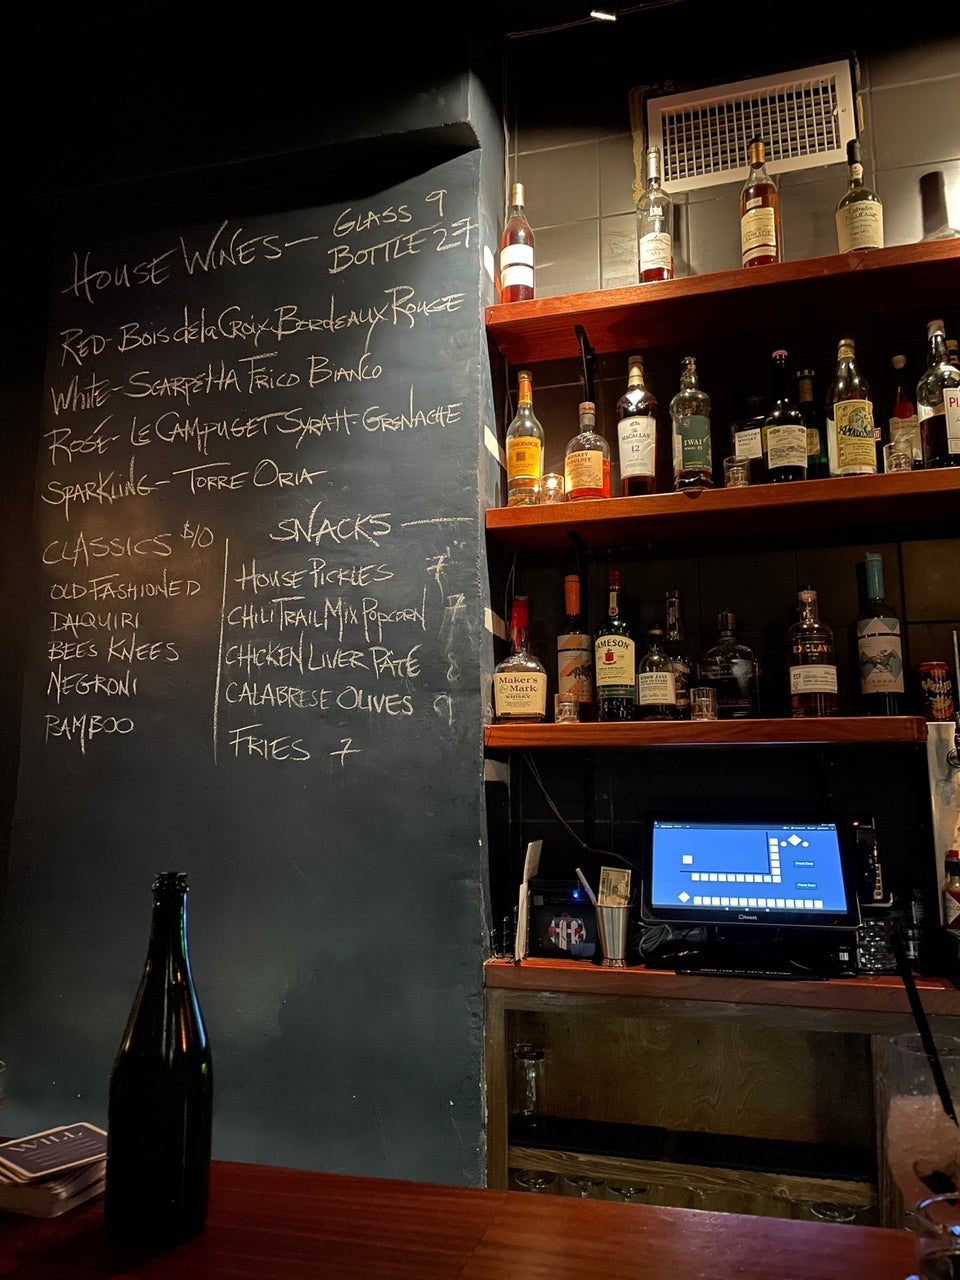 HOUSE WINES — GLASS 9
BOTTLE 27
RED - Bois de la Croix Bordeaux Rouge
White - SCARPETTA FRICO BIANCO
ROSÉ - LE CAMPUGET SYRAH-GRENACHE
SPARKLING - TORRE ORIA
CLASSICS $10
OLD FASHIONED
DAIQUIRI
BEES KNEES
NEGRONI
BAMBOO
SNACKS
HOUSE PICKLES 7
CHILI TRAIL MIX POPCORN 7
CHICKEN LIVER PATÉ 8
CALABRESE OLIVES 9
FRIES 7
MACALLAN
12
IWAI
Maker's
Mark
JAMESON
WIDOW JANE
toast
WILL